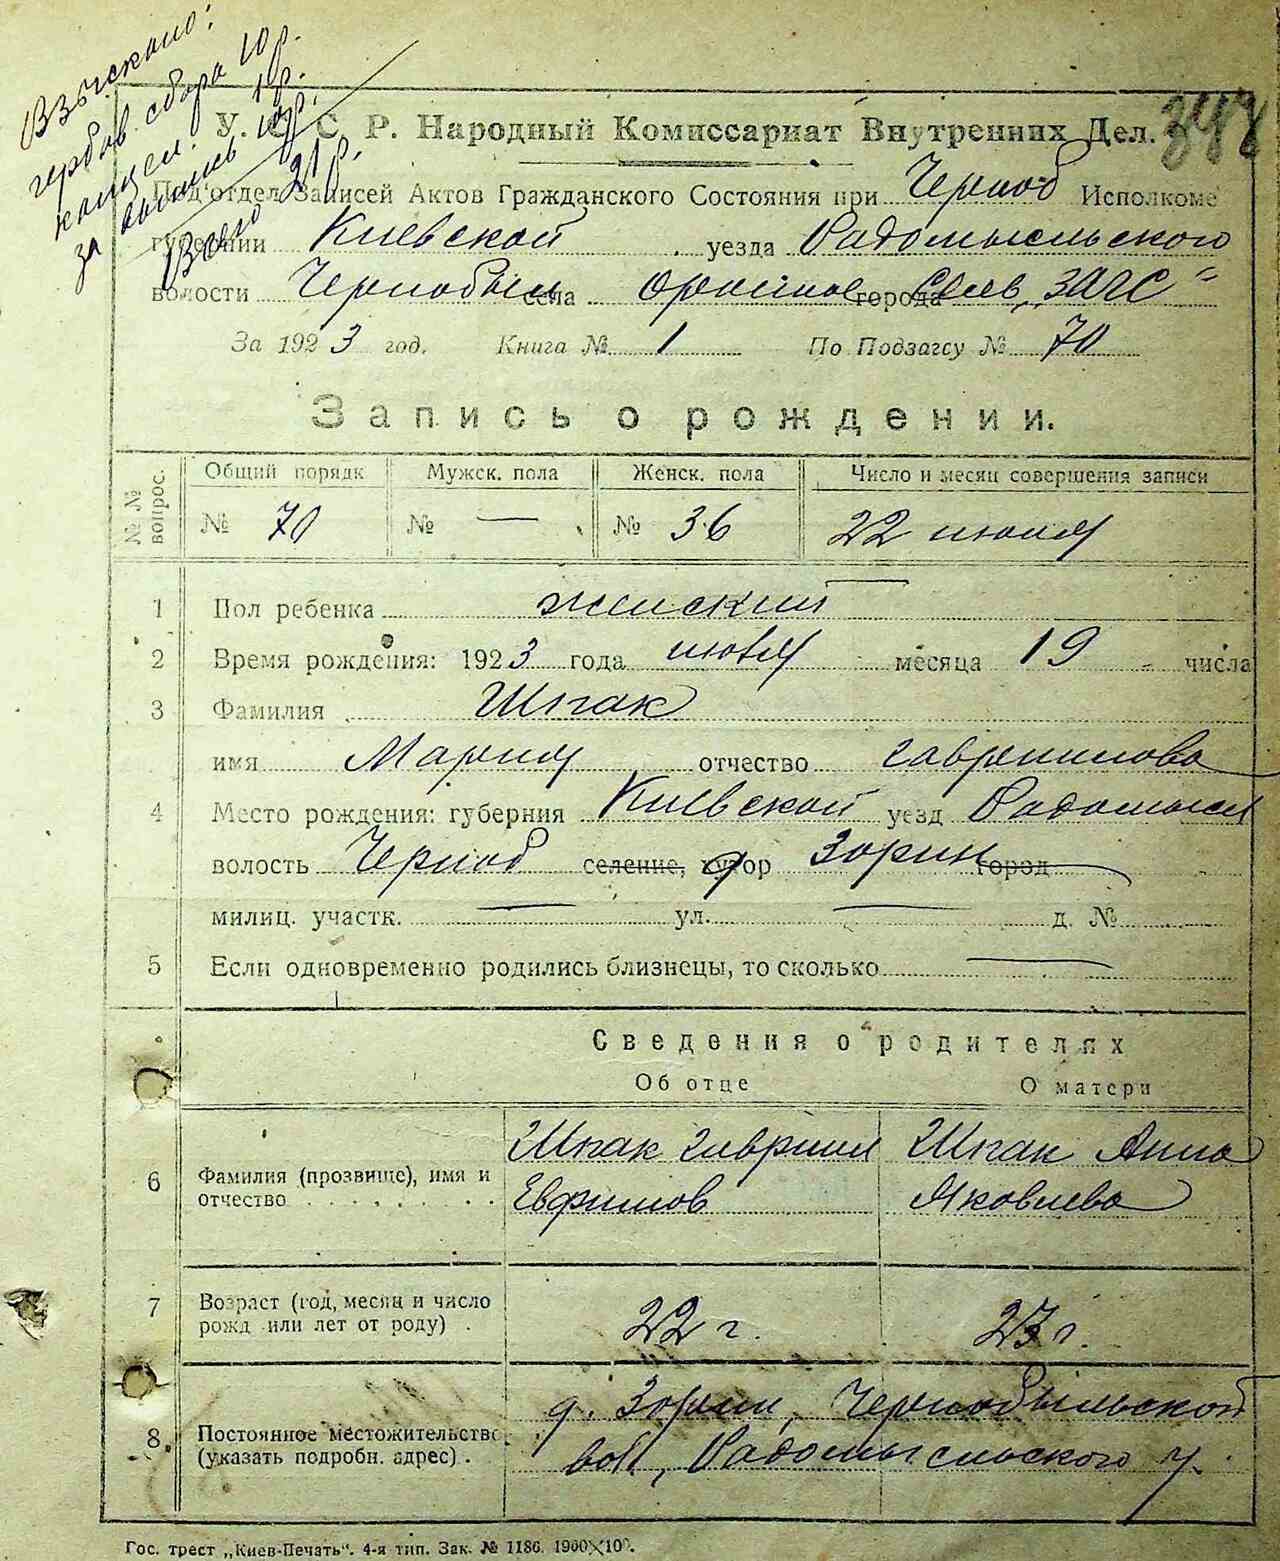 Взыскано:
гербов. сбора 10 р.
канцел. 1 р.
за бланк 10 р.
Всего 21 р.
347
У. С. С. Р. Народный Комиссариат Внутренних Дел.
Под'отдел Записей Актов Гражданского Состояния при Черноб Исполкоме
губернии Киевской уезда Радомысльского
волости Чернобыл села города ЗАГС"
За 1923 год. Книга № 1 По Подзагсу № 70
Запись о рождении.
№ № вопрос. Общий порядк Мужск. пола Женск. пола Число и месяц совершения записи
№ 70 № — № 36 22 июля
1 Пол ребенка женский
2 Время рождения: 1923 года июля месяца 19 числа
3 Фамилия Шпак
имя Мария отчество Гавриилова
4 Место рождения: губерния Киевской уезд Радомысл
волость Черноб селение, хутор д Зорин город
милиц. участк. — ул. — д. №
5 Если одновременно родились близнецы, то сколько —
Сведения о родителях
Об отце О матери
Шпак Гавриил Шпак Анна
6 Фамилия (прозвище), имя и
отчество Евфимов Яковлева
7 Возраст (год, месяц и число
рожд или лет от роду) . 22 г. 23 г.
д. Зорин, Чернобыльской
8. Постоянное местожительство
(указать подробн. адрес) . вол, Радомысльского у.
Гос. трест „Киев-Печать". 4-я тип. Зак. № 1186. 1900×100.